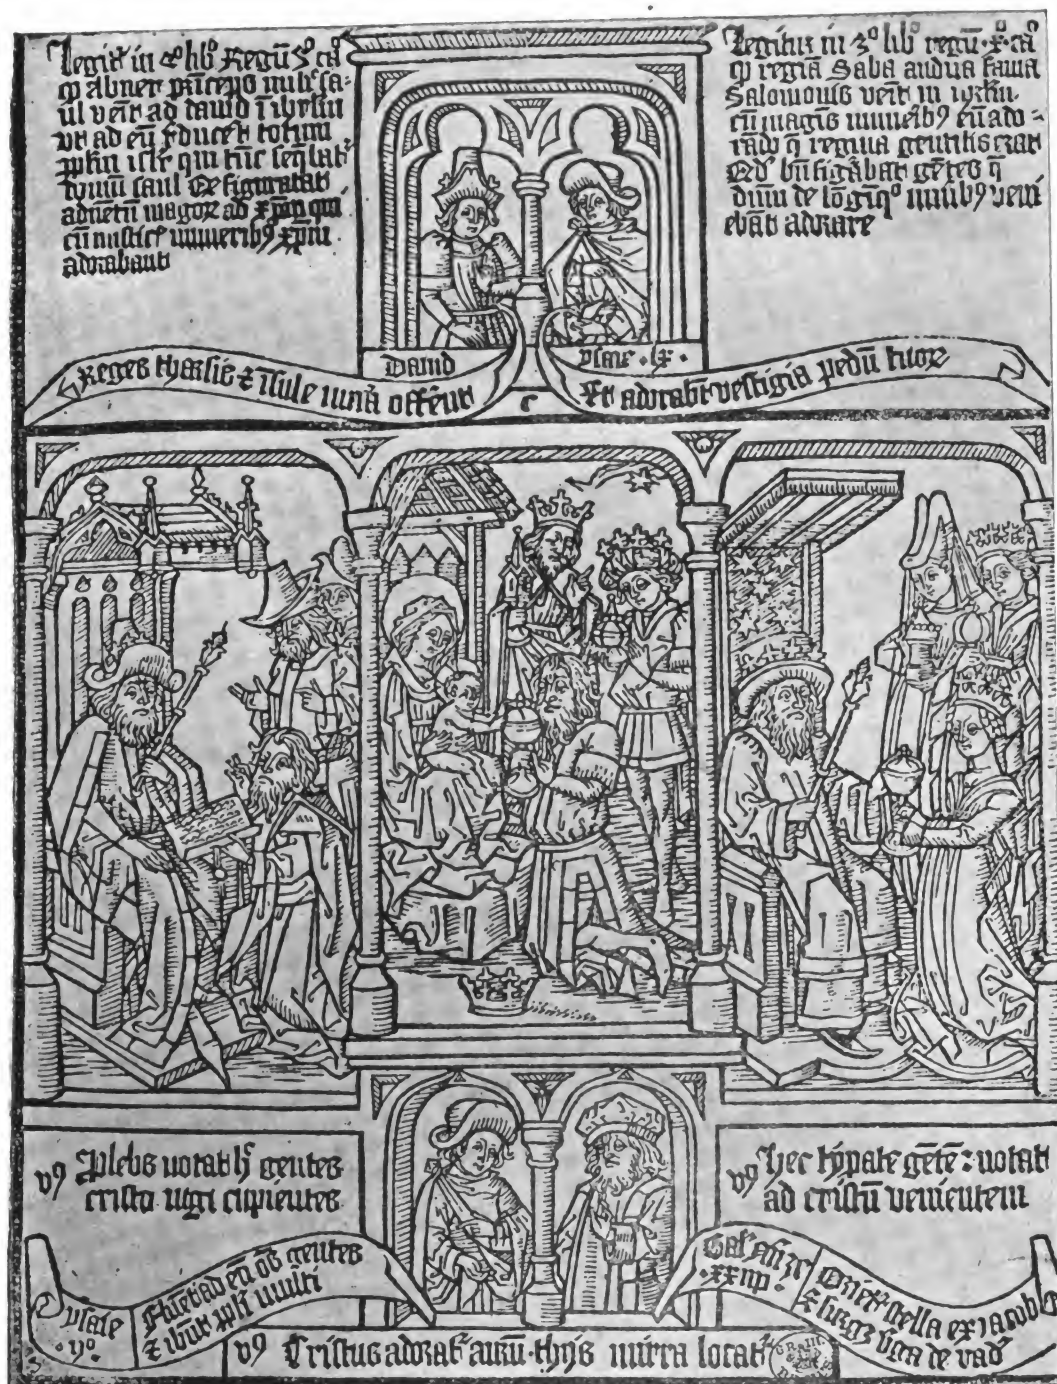 Legit᷑ in 2º lib͛º Regū 3º ca͛º
ꝙ abner p͛nceps milic͛ sa-
ul venit ad dauid ī ihr͛lm
vt ad eū r̄duce͛t totum
pplm̄ isrl͛ qui tūc seq̄bat᷑
domum saul Qd͛ figurabat
aduētū magoꝝ ad xp̄m qui
cū misticis muneribꝰ xp̄m
adorabant
Legitur in 3º lib͛º regū · xº ca͛º
ꝙ regia Saba audita fama
Salomonis venit in ihr͛lm
cū magnis muneribꝰ eū ado-
rādo q̄ regina gentilis erat
Qd͛ bn̄ figurabat gētes q̄
dn̄m de lōginqº muībꝰ veni
ebāt adorare
Dauid
ysaie · lx ·
Reges tharsis ⁊ īsule mūa offerēt
c
Et adorabūt vestigia pedū tuoꝝ
vꝰ Plebs notat hͨ gentes
cristo iūgi cupientes
vꝰ Hec typice gētē : notat
ad cristū venientem
ysaie
· ijº
Fluēt ad eū oēs gentes
⁊ ibūt ppl͛i multi
· xxiiij ·
Oriet᷑ stella ex iacob
⁊ surget v͛ga de
vꝰ Cristus adorat᷑ aurū · thus mirra locat᷑